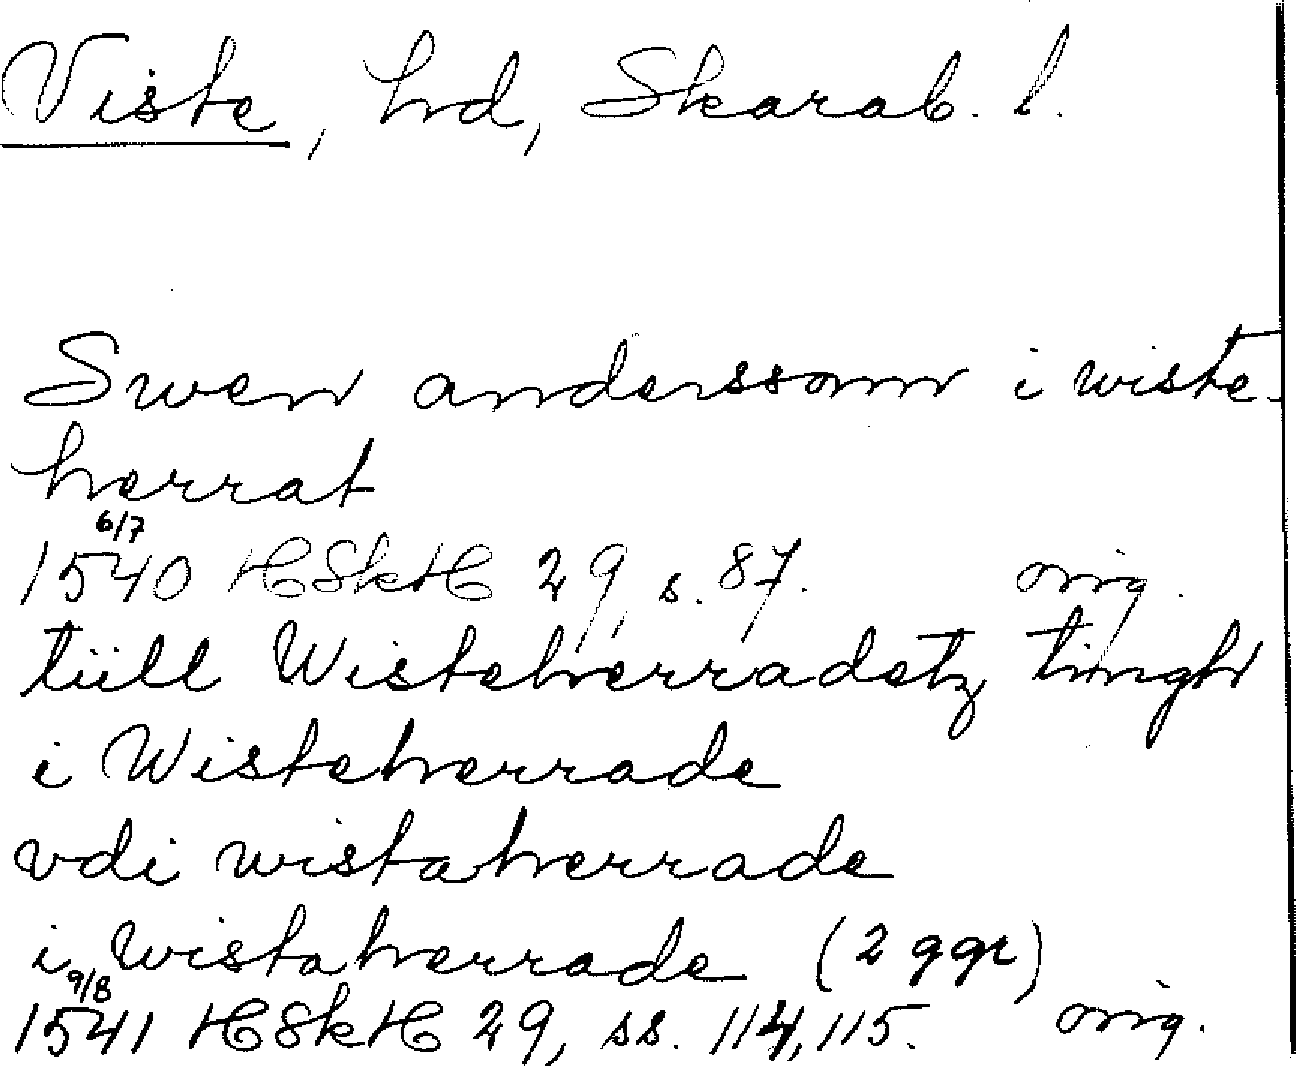 Viste, hd, Skarab. l.
Swen anderssonn i wiste-
herrat
6/7
1540 HSkH 29, s. 87. orig.
tiill Wisteherradetz tingh
i Wisteherrade
vdi wistaherrade
i Wistaherrade (2 ggr)
9/8
1541 HSkH 29, ss. 114, 115. orig.